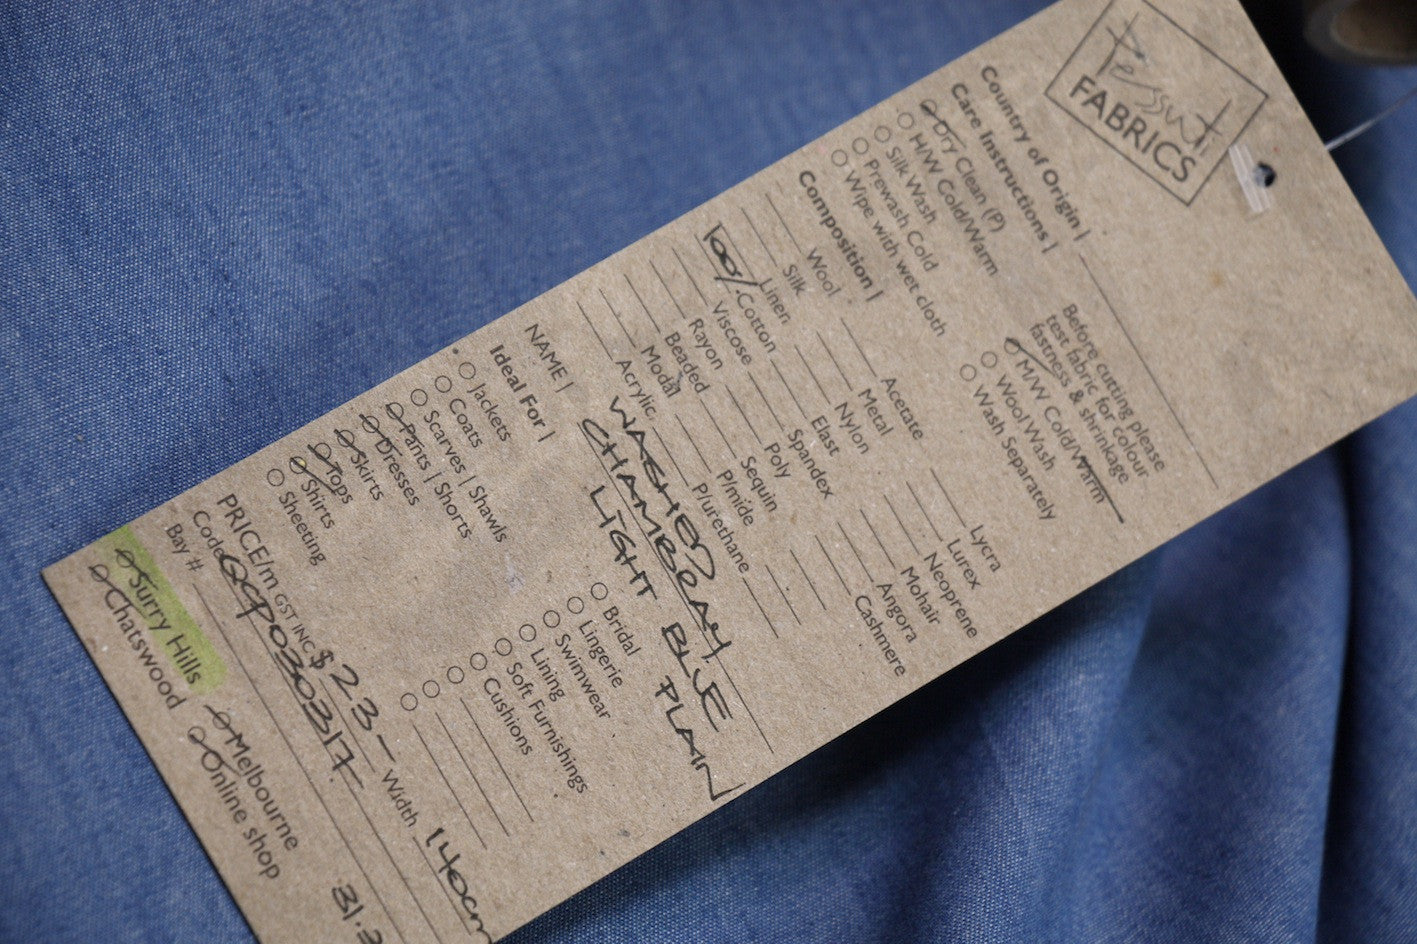 Tessuti
FABRICS
Country of Origin |
Care Instructions |
Dry Clean (P)
H/W Cold/Warm
Silk Wash
Prewash Cold
Wipe with wet cloth
Before cutting please
test fabric for colour
fastness & shrinkage
M/W Cold/Warm
Wool Wash
Wash Separately
Composition |
Wool
Silk
Linen
100% Cotton
Viscose
Rayon
Beaded
Modal
Acrylic
Acetate
Metal
Nylon
Elast
Spandex
Poly
Sequin
P/mide
P/urethane
Lycra
Lurex
Neoprene
Mohair
Angora
Cashmere
NAME | WASHED
CHAMBRAY
LIGHT BLUE PLAIN
Ideal For |
Jackets
Coats
Scarves | Shawls
Pants | Shorts
Dresses
Skirts
Tops
Shirts
Sheeting
Bridal
Lingerie
Swimwear
Lining
Soft Furnishings
Cushions
PRICE/m GST INC $23- Width 140cm
Code
Bay #
Surry Hills
Chatswood
Melbourne
Online shop